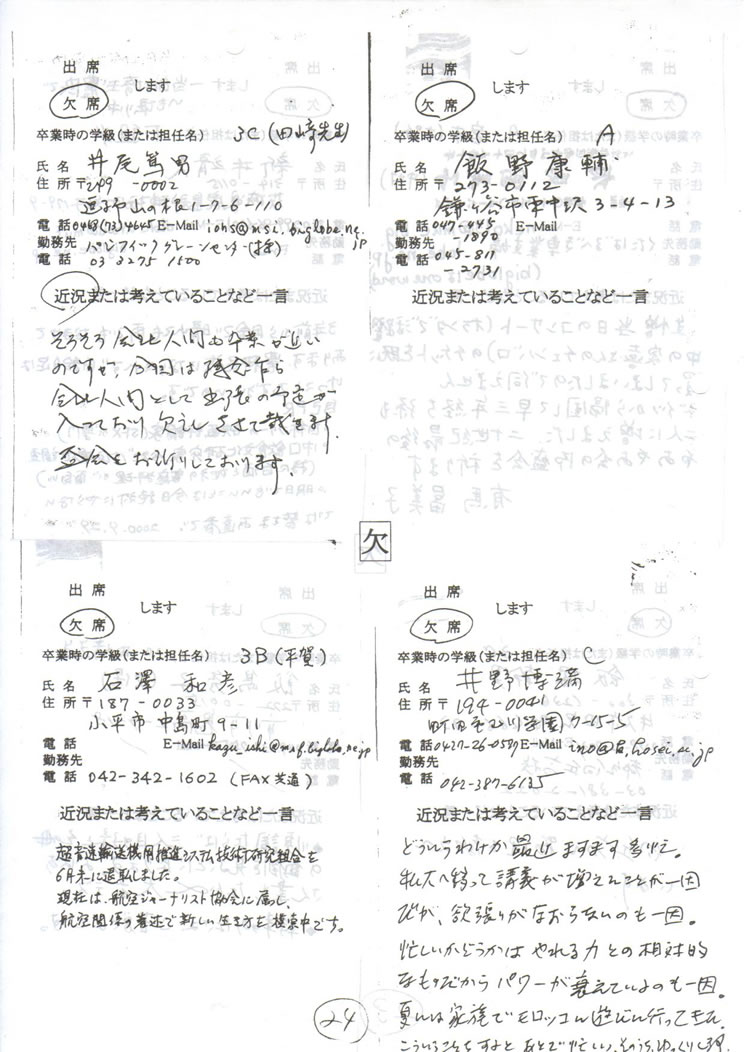 出 席
します
欠 席
卒業時の学級(または担任名) 3C (田崎先生)
氏 名 井尾篤男
住 所 〒249 -0002
逗子市山の根1-7-6-110
電 話 0468(73)4645 E-Mail iohs@msi.biglobe.ne.jp
勤務先 パシフィックグレーンセンター(株)
電 話 03 3275 1500
近況または考えていることなど一言
そろそろ会社人間も卒業が近い
のですが、今回は残念乍ら
会社人間として出張の予定が
入っており欠礼させて戴きます
盛会をお祈りしております。
出 席
します
欠 席
卒業時の学級(または担任名) A
氏 名 飯野康輔
住 所 〒273-0112
鎌ヶ谷市東中沢 3-4-13
電 話 047-445 E-Mail
勤務先 -1890
電 話 045-811
-2731
近況または考えていることなど一言
欠
出 席
します
欠 席
卒業時の学級(または担任名) 3B (平賀)
氏 名 石澤 和彦
住 所 〒187-0033
小平市 中島町 9-11
電 話 E-Mail kazu_ishi@mxf.biglobe.ne.jp
勤務先
電 話 042-342-1602 (FAX共通)
近況または考えていることなど一言
超音速輸送機用推進システム技術研究組合を
6月末に退職しました。
現在は、航空ジャーナリスト協会に属し、
航空関係の著述で新しい生き方を模索中です。
出 席
します
欠 席
卒業時の学級(または担任名) C
氏 名 井野博満
住 所 〒194-0041
町田市玉川学園7-15-5
電 話 0427-26-0587 E-Mail ino@k.hosei.ac.jp
勤務先
電 話 042-387-6135
近況または考えていることなど一言
どういうわけか最近ますます多忙。
私大へ移って講義が増えたことが一因
だが、欲張りがなおらないのも一因。
忙しいかどうかは やれる力との相対的
なものだから パワーが衰えているのも一因。
夏には家族でモロッコに遊びに行ってきた。
こういうことをするとあとで忙しい。
24